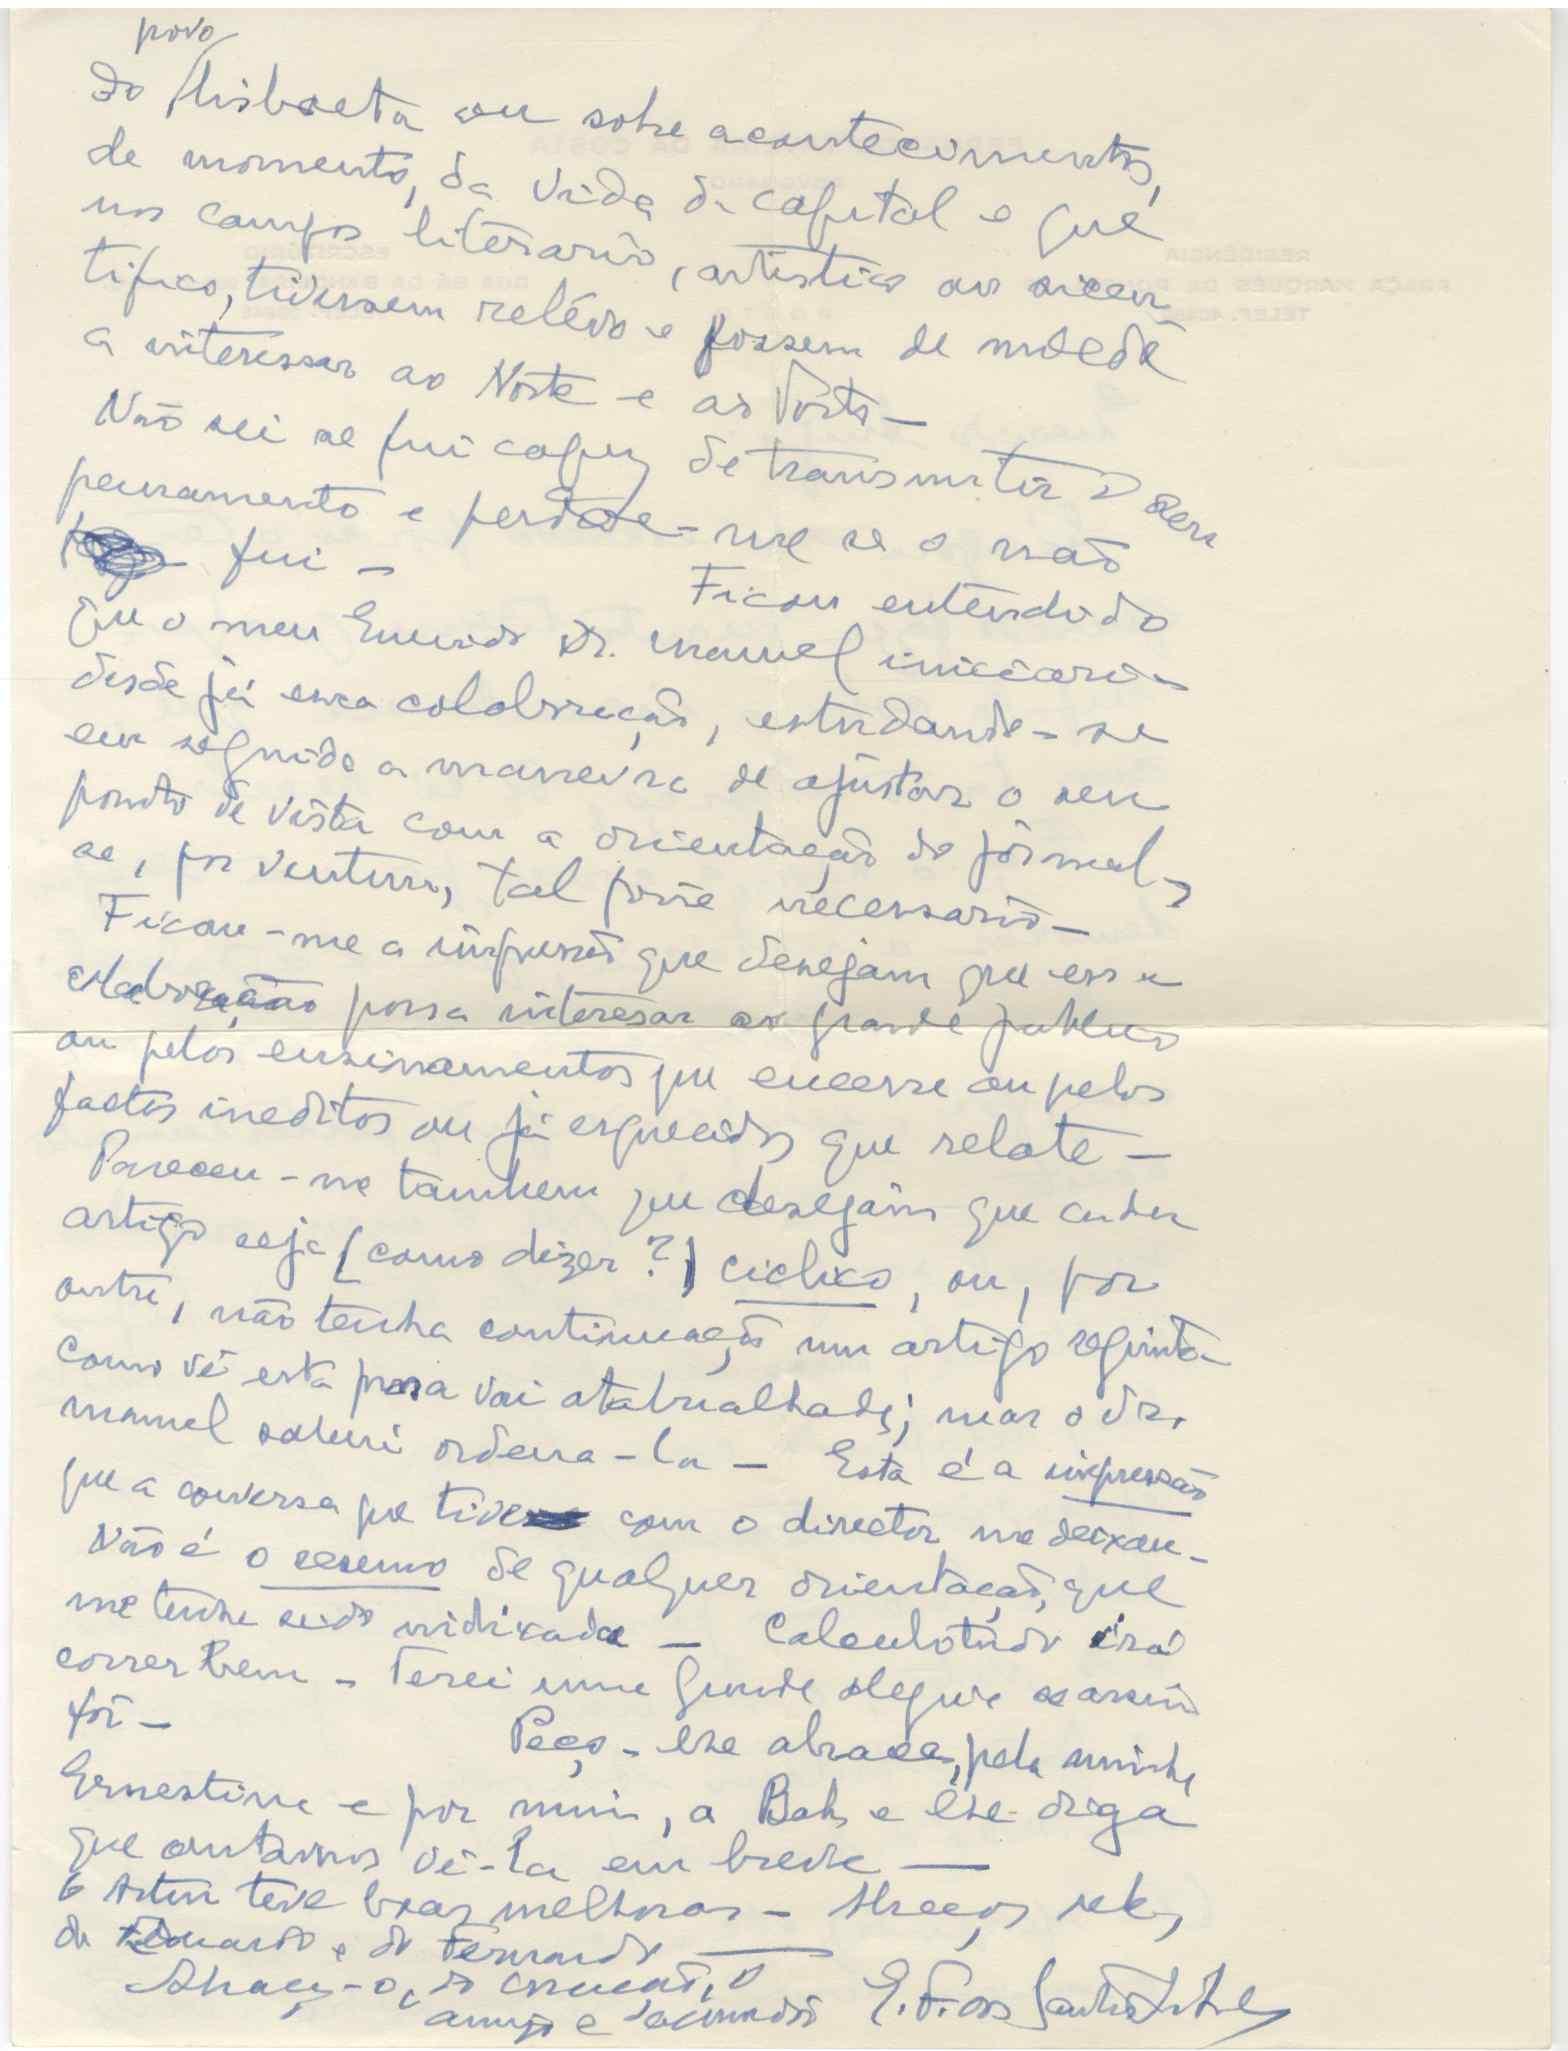 povo
do lisboeta ou sobre acontecimentos,
de momento, da vida da capital e que
nos campos literario, artistico ou scien
tifico, tivessem relêvo e fossem de molde
a interessar ao Norte e ao Porto —
Não sei se fui capaz de transmitir o seu
pensamento e perdoe-me se o não
fui —
Ficou entendido
que o meu Querido Dr. Manuel iniciaria
desde já essa colaboração, estudando-se
em seguida a maneira de ajustar o seu
ponto de vista com a orientação do jornal,
se, por ventura, tal fosse necessario —
Ficou-me a impressão que desejam que essa
colaboração possa interesar ao grande publico
ou pelos ensinamentos que encerre ou pelos
factos ineditos ou já esquecidos que relate —
Pareceu-me tambem que desejam que cada
artigo seja (como dizer?) ciclico, ou, por
outra, não tenha continuação num artigo seguinte —
Como vê esta prosa vai atabalhoada; mas o Dr.
Manuel saberá ordena-la — Esta é a impressão
que a conversa que tive com o director me deixou —
Não é o resumo de qualquer orientação, que
me tenha sido indicada — Calculo tudo irá
correr bem — Terei uma grande alegria se assim
fôr —
Peço-lhe abrace, pela minha
Ernestina e por mim, a e lhe diga
que contamos vê-la em breve —
O Artur teve boas melhoras — Abraços
do Eduardo e do Fernando —
Abraça-o, do coração, o
amigo e E. F. dos Santos Silva